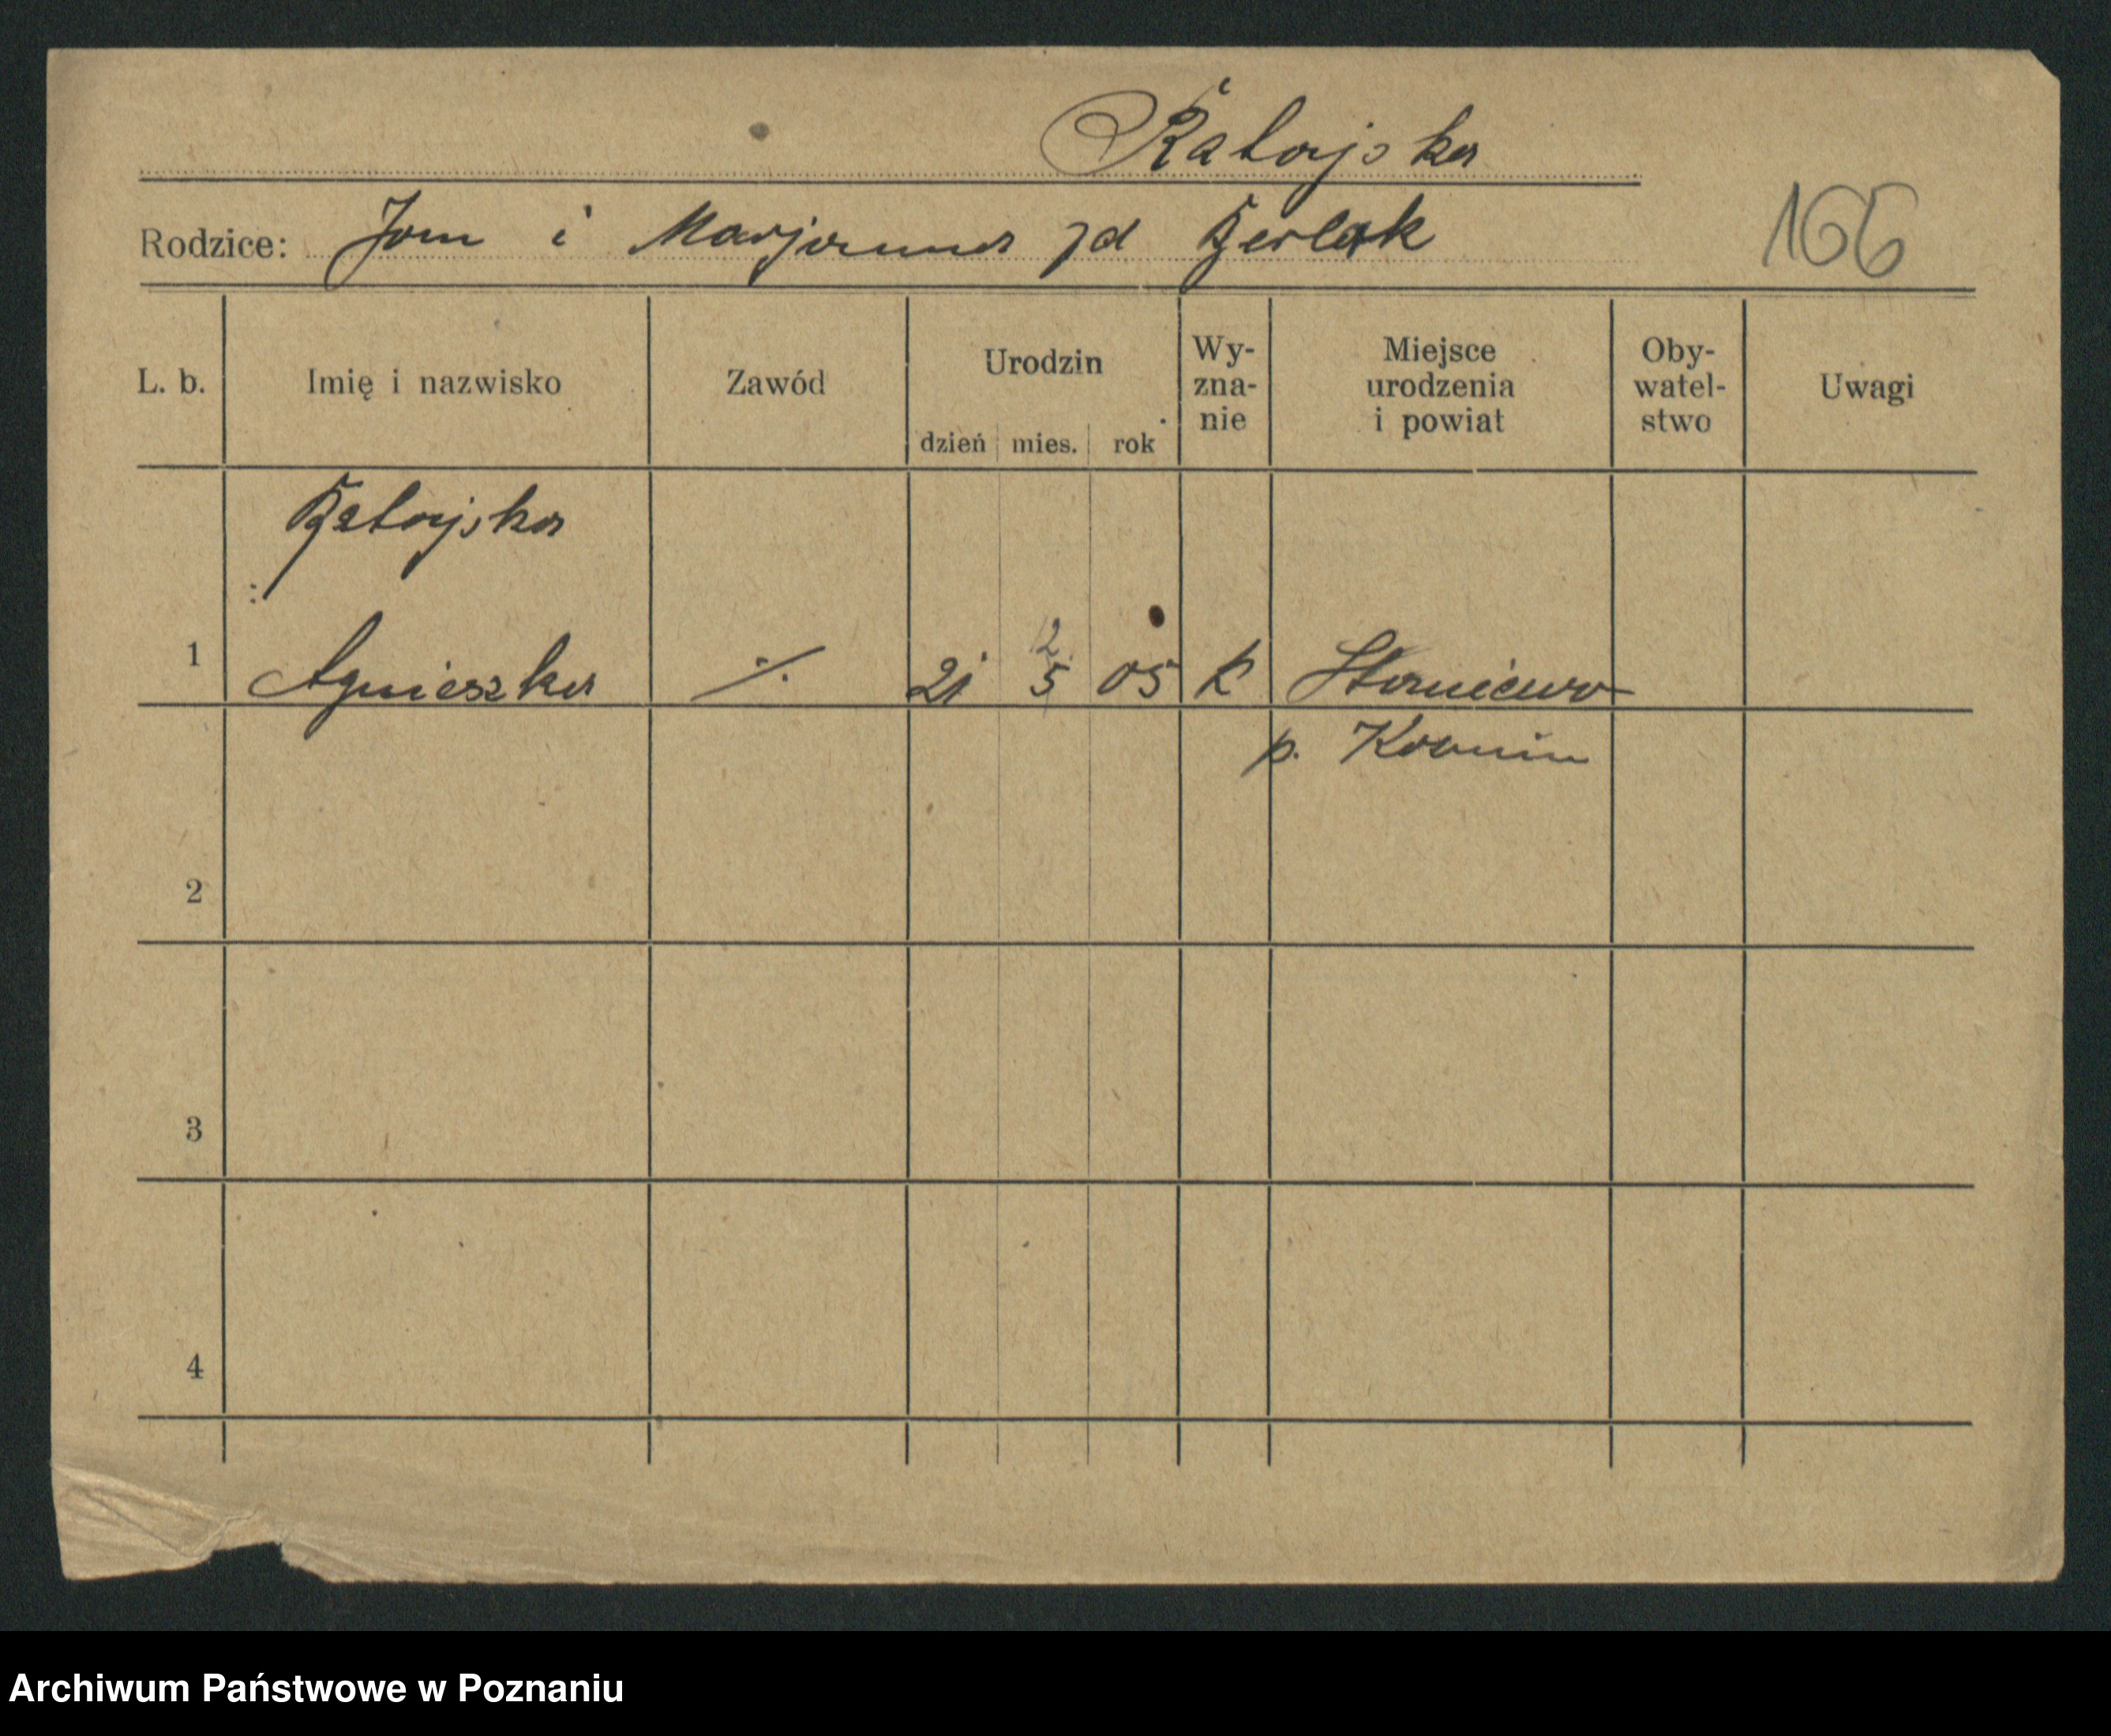 Ratajska
Rodzice: Jan i Marjanna zd Gerlak
166
L. b.
Imię i nazwisko
Zawód
Urodzin
dzień mies. rok
Wy-
zna-
nie
Miejsce
urodzenia
i powiat
Oby-
watel-
stwo
Uwagi
Ratajska
1 Agnieszka ./. 21 5 05 k
2
p. Konin
2
3
4
Archiwum Państwowe w Poznaniu